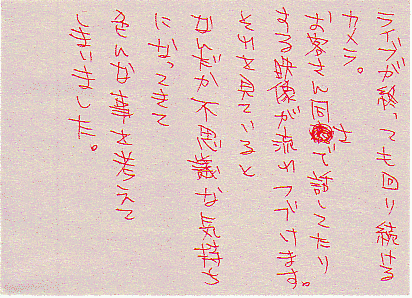 ライブが終っても回り続ける
カメラ。
お客さん同士で話してたり
する映像が流れつづけます。
それを見ていると
なんだか不思議な気持ち
になってきて
色んな事を考えて
しまいました。